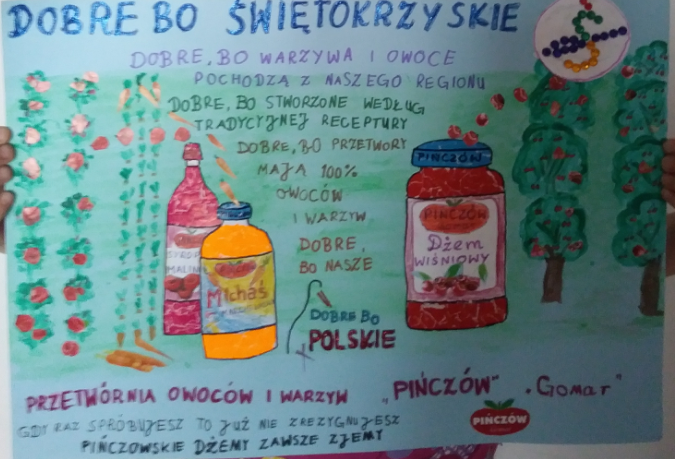 DOBRE BO ŚWIĘTOKRZYSKIE
DOBRE, BO WARZYWA I OWOCE
POCHODZĄ Z NASZEGO REGIONU
DOBRE, BO STWORZONE WEDŁUG
TRADYCYJNEJ RECEPTURY
DOBRE, BO PRZETWORY
MAJĄ 100%
OWOCÓW
I WARZYW
DOBRE,
BO NASZE
DOBRE BO
POLSKIE
SYROP
MALIN
Michaś
PIŃCZÓW
PIŃCZÓW
Dżem
WIŚNIOWY
PRZETWÓRNIA OWOCÓW I WARZYW „PIŃCZÓW" „Gomar"
PIŃCZÓW
GDY RAZ SPRÓBUJESZ TO JUŻ NIE ZREZYGNUJESZ
PIŃCZOWSKIE DŻEMY ZAWSZE ZJEMY